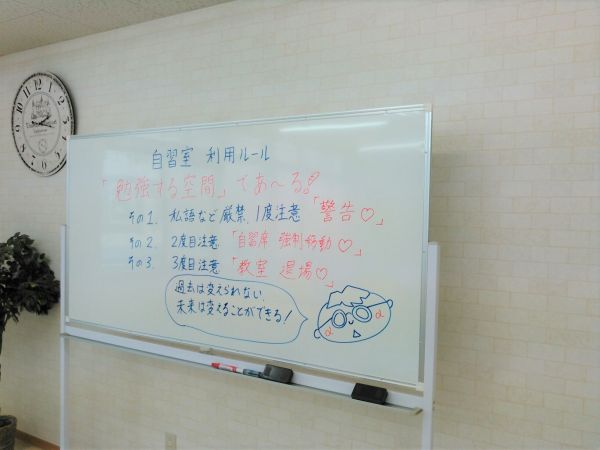 自習室 利用ルール
「勉強する空間」であ〜る!
その1. 私語など厳禁、1度注意「警告♡」
その2. 2度目注意「自習席 強制移動♡」
その3. 3度目注意「教室 退場♡」
過去は変えられない、
未来は変えることができる!